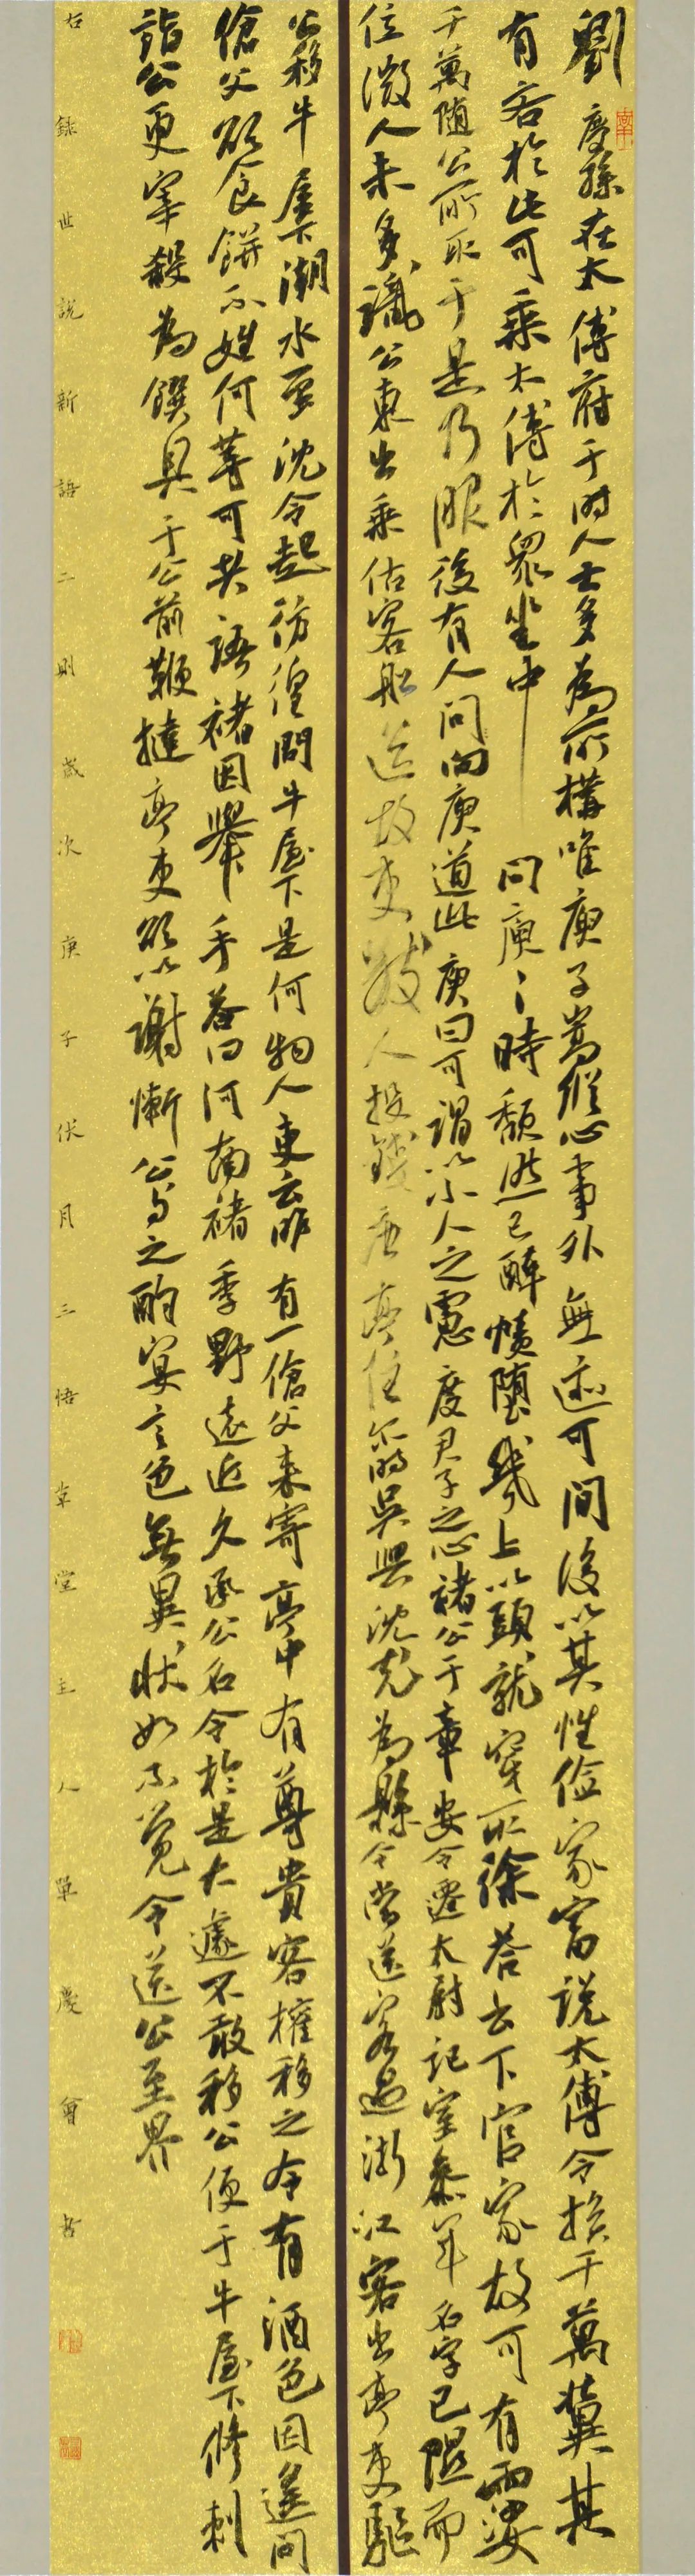 劉慶孫在太傅府于時人士多為所構唯庾子嵩縱心事外無迹可間後以其性儉家富説太傅令換千萬冀其
有吝於此可乘太傅於眾坐中問庾〻時頹然已醉幘墮几上以頭就穿取徐荅云下官家故可有兩娑
千萬随公所取于是乃服後有人問向庾道此庾曰可謂以小人之慮度君子之心褚公于章安令遷太尉記室參軍名字已顯而
位微人未多識公東出乘估客船送故吏數人投錢唐亭住尒時吳興沈充為縣令當送客過浙江客出亭吏驅
公移牛屋下潮水至沈令起彷徨問牛屋下是何物人吏云昨有一傖父來寄亭中有尊貴客權移之令有酒色因遙問
傖父欲食餅不姓何等可共語褚因舉手荅曰河南褚季野遠近久承公名令於是大遽不敢移公便于牛屋下修刺
詣公更宰殺為饌具于公前鞭撻亭吏欲以謝慚公与之酌宴言色無異狀如不覺令送公至界
右録世説新語二則歲次庚子伏月三悟草堂主人單慶會書